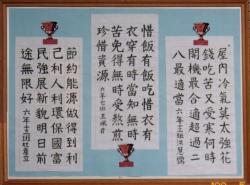 屋內冷氣莫太強花
錢吃苦又受寒何時
開機最合適超過二
八最適當
惜飯有飯吃惜衣有
衣穿有時當知無時
苦免得無時受熬煎
珍惜資源 六年七班
節約能源做得到利
己利人利環保國富
民強展新貌明日前
途無限好